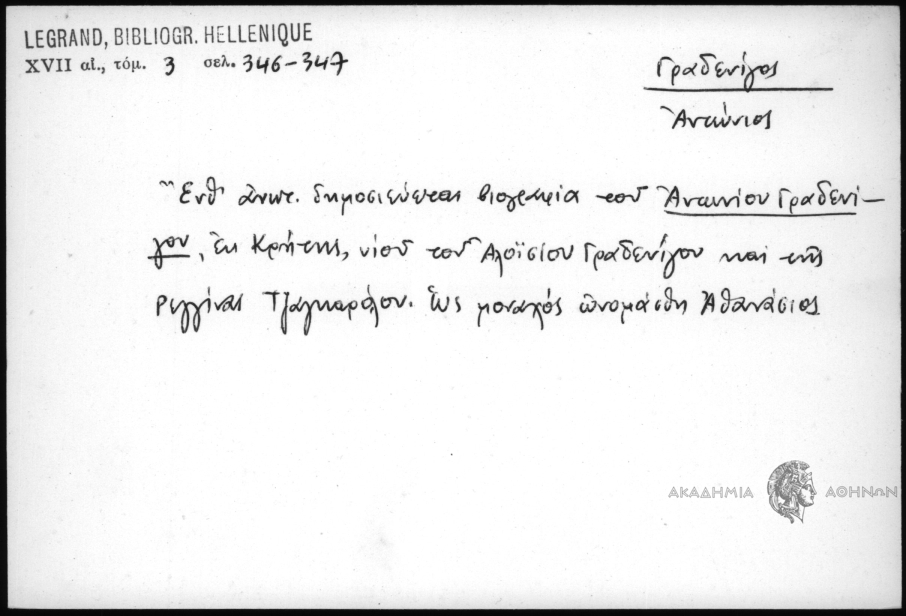 LEGRAND, BIBLIOGR. HELLENIQUE
XVII αἰ., τόμ. 3 σελ. 346-347
Γραδενίγος
Ἀντώνιος
Ἔνθ' ἀνωτ. δημοσιεύεται βιογραφία τοῦ Ἀντωνίου Γραδενί-
γου, ἐκ Κρήτης, υἱοῦ τοῦ Ἀλοϊσίου Γραδενίγου καὶ τῆς
Ρεγγίνας Τζαγκαρόλου. Ὡς μοναχός ὠνομάσθη Ἀθανάσιος
ΑΚΑΔΗΜΙΑ ΑΘΗΝΩΝ